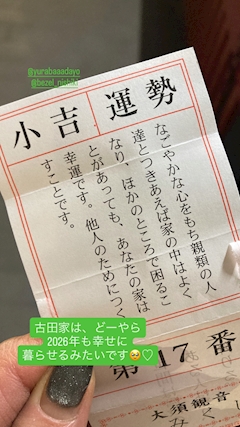 @yurabaaadayo
@bezel_nishiki
運勢
小吉
なごやかな心をもち親類の人
達とつきあえば家の中はよく
なり、ほかのところで困るこ
とがあっても、あなたの家は
幸運です。他人のためにつく
すことです。
古田家は、どーやら
2026年も幸せに
暮らせるみたいです🥺♡
第17番
大須観音